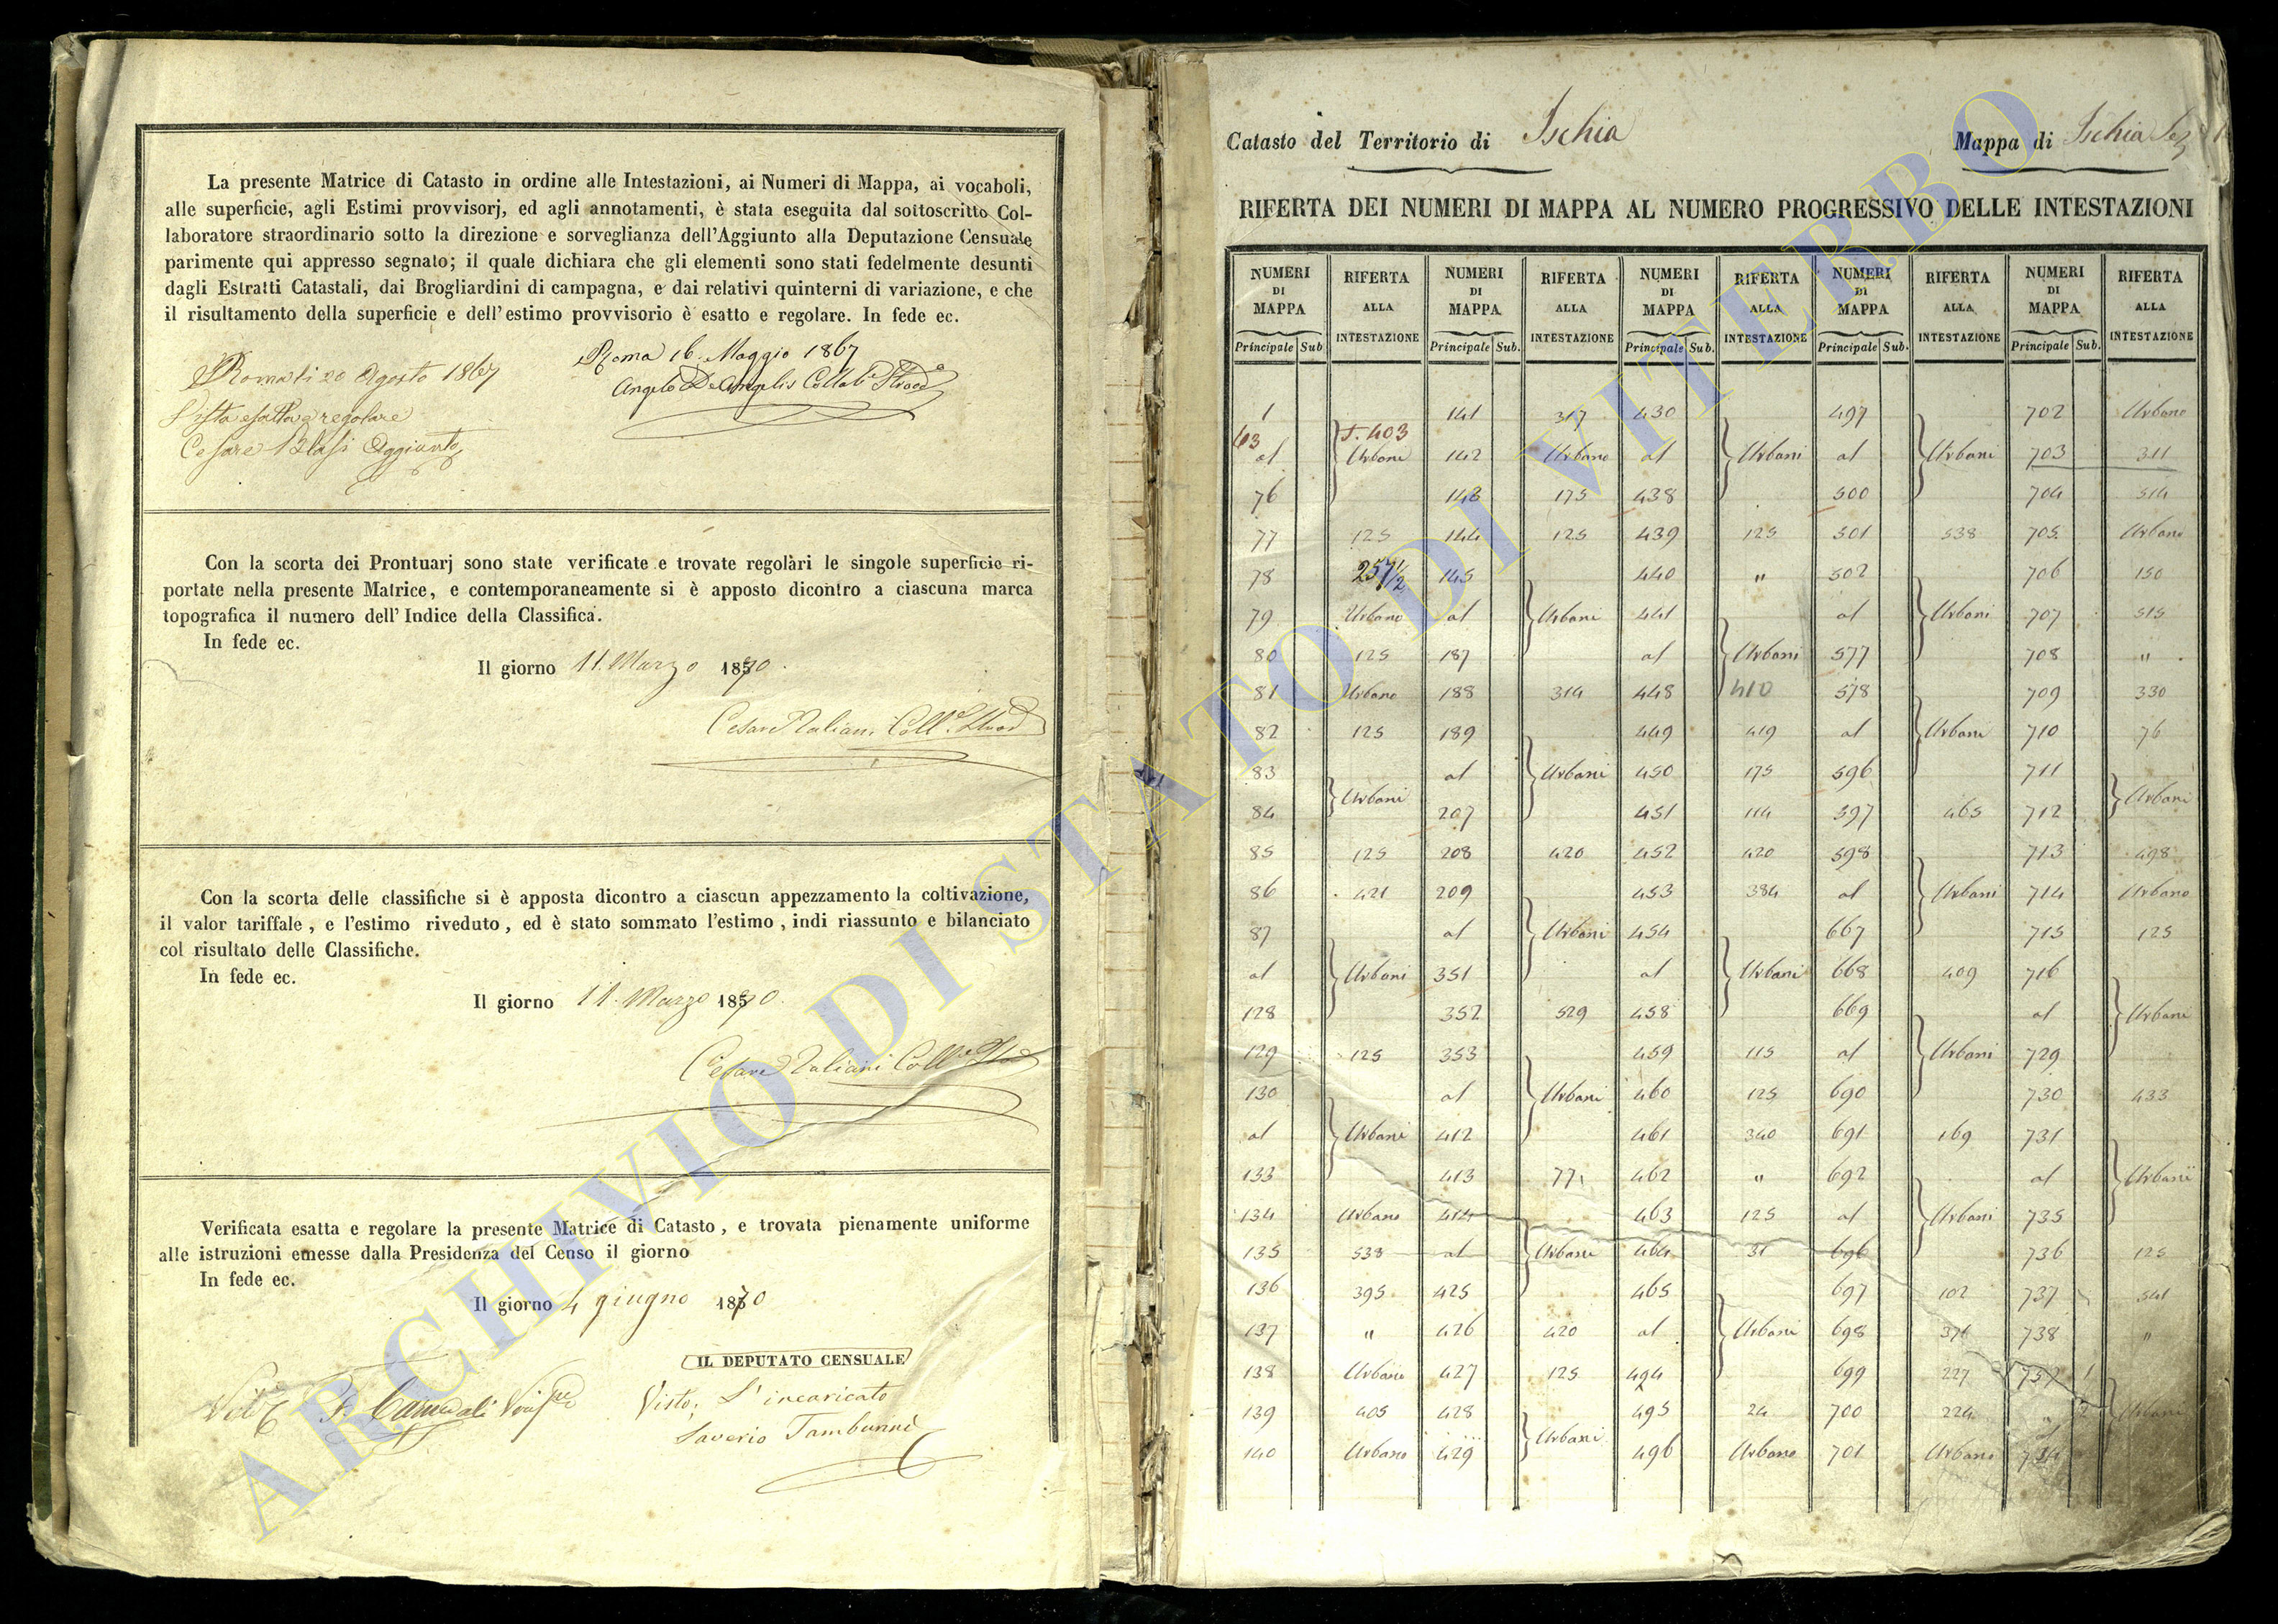 La presente Matrice di Catasto in ordine alle Intestazioni, ai Numeri di Mappa, ai vocaboli,
alle superficie, agli Estimi provvisorj, ed agli annotamenti, è stata eseguita dal sottoscritto Col-
laboratore straordinario sotto la direzione e sorveglianza dell'Aggiunto alla Deputazione Censuale
parimente qui appresso segnato; il quale dichiara che gli elementi sono stati fedelmente desunti
dagli Estratti Catastali, dai Brogliardini di campagna, e dai relativi quinterni di variazione, e che
il risultamento della superficie e dell'estimo provvisorio è esatto e regolare. In fede ec.
Roma 16. Maggio 1867
Angelo De Angelis
Roma li 20 Agosto 1867
Vista esatta e regolare
Cesare Blasi Aggiunto
Con la scorta dei Prontuarj sono state verificate e trovate regolari le singole superficie ri-
portate nella presente Matrice, e contemporaneamente si è apposto dicontro a ciascuna marca
topografica il numero dell'Indice della Classifica.
In fede ec.
Il giorno 11. Marzo 1870.
Cesare
Con la scorta delle classifiche si è apposta dicontro a ciascun appezzamento la coltivazione,
il valor tariffale, e l'estimo riveduto, ed è stato sommato l'estimo, indi riassunto e bilanciato
col risultato delle Classifiche.
In fede ec.
Il giorno 11. Marzo 1870.
Cesare
Verificata esatta e regolare la presente Matrice di Catasto, e trovata pienamente uniforme
alle istruzioni emesse dalla Presidenza del Censo il giorno
In fede ec.
Il giorno 4 giugno 1870
IL DEPUTATO CENSUALE
Visto; L'incaricato
Saverio
ARCHIVIO DI STATO DI VITERBO
Catasto del Territorio di Ischia Mappa di Ischia
RIFERTA DEI NUMERI DI MAPPA AL NUMERO PROGRESSIVO DELLE INTESTAZIONI
NUMERI DI MAPPA RIFERTA ALLA INTESTAZIONE NUMERI DI MAPPA RIFERTA ALLA INTESTAZIONE NUMERI DI MAPPA RIFERTA ALLA INTESTAZIONE NUMERI DI MAPPA RIFERTA ALLA INTESTAZIONE NUMERI DI MAPPA RIFERTA ALLA INTESTAZIONE
Principale Sub Principale Sub. Principale Sub. Principale Sub. Principale Sub.
1 141 317 430 497 702 Urbano
63 403
al Urbani 142 Urbano al Urbani al Urbani 703 311
76 143 175 438 500 704 514
77 125 144 125 439 125 501 538 705 Urbano
78 257 1/2 145 440 " 502 706 150
79 Urbano al Urbani 441 al Urbani 707 515
80 125 187 al Urbani 577 708 "
81 Urbano 188 314 448 410 578 709 330
82 125 189 449 419 al Urbani 710 76
83 al Urbani 450 175 596 711
84 Urbani 207 451 114 597 465 712 Urbani
85 125 208 420 452 420 598 713 498
86 421 209 453 384 al Urbani 714 Urbano
87 al Urbani 454 667 715 125
al Urbani 351 al Urbani 668 409 716
128 352 529 458 669 al Urbani
129 125 353 459 115 al Urbani 729
130 al Urbani 460 125 690 730 433
al Urbani 412 461 340 691 169 731
133 413 77 462 " 692 al Urbani
134 Urbano 414 463 125 al Urbani 735
135 538 al Urbani 464 31 696 736 125
136 395 425 465 697 102 737 541
137 " 426 420 al Urbani 698 371 738 "
138 Urbano 427 125 494 699 227 1
139 405 428 495 24 700 224 " 2 Urbani
140 Urbano 429 Urbani 496 Urbano 701 Urbano